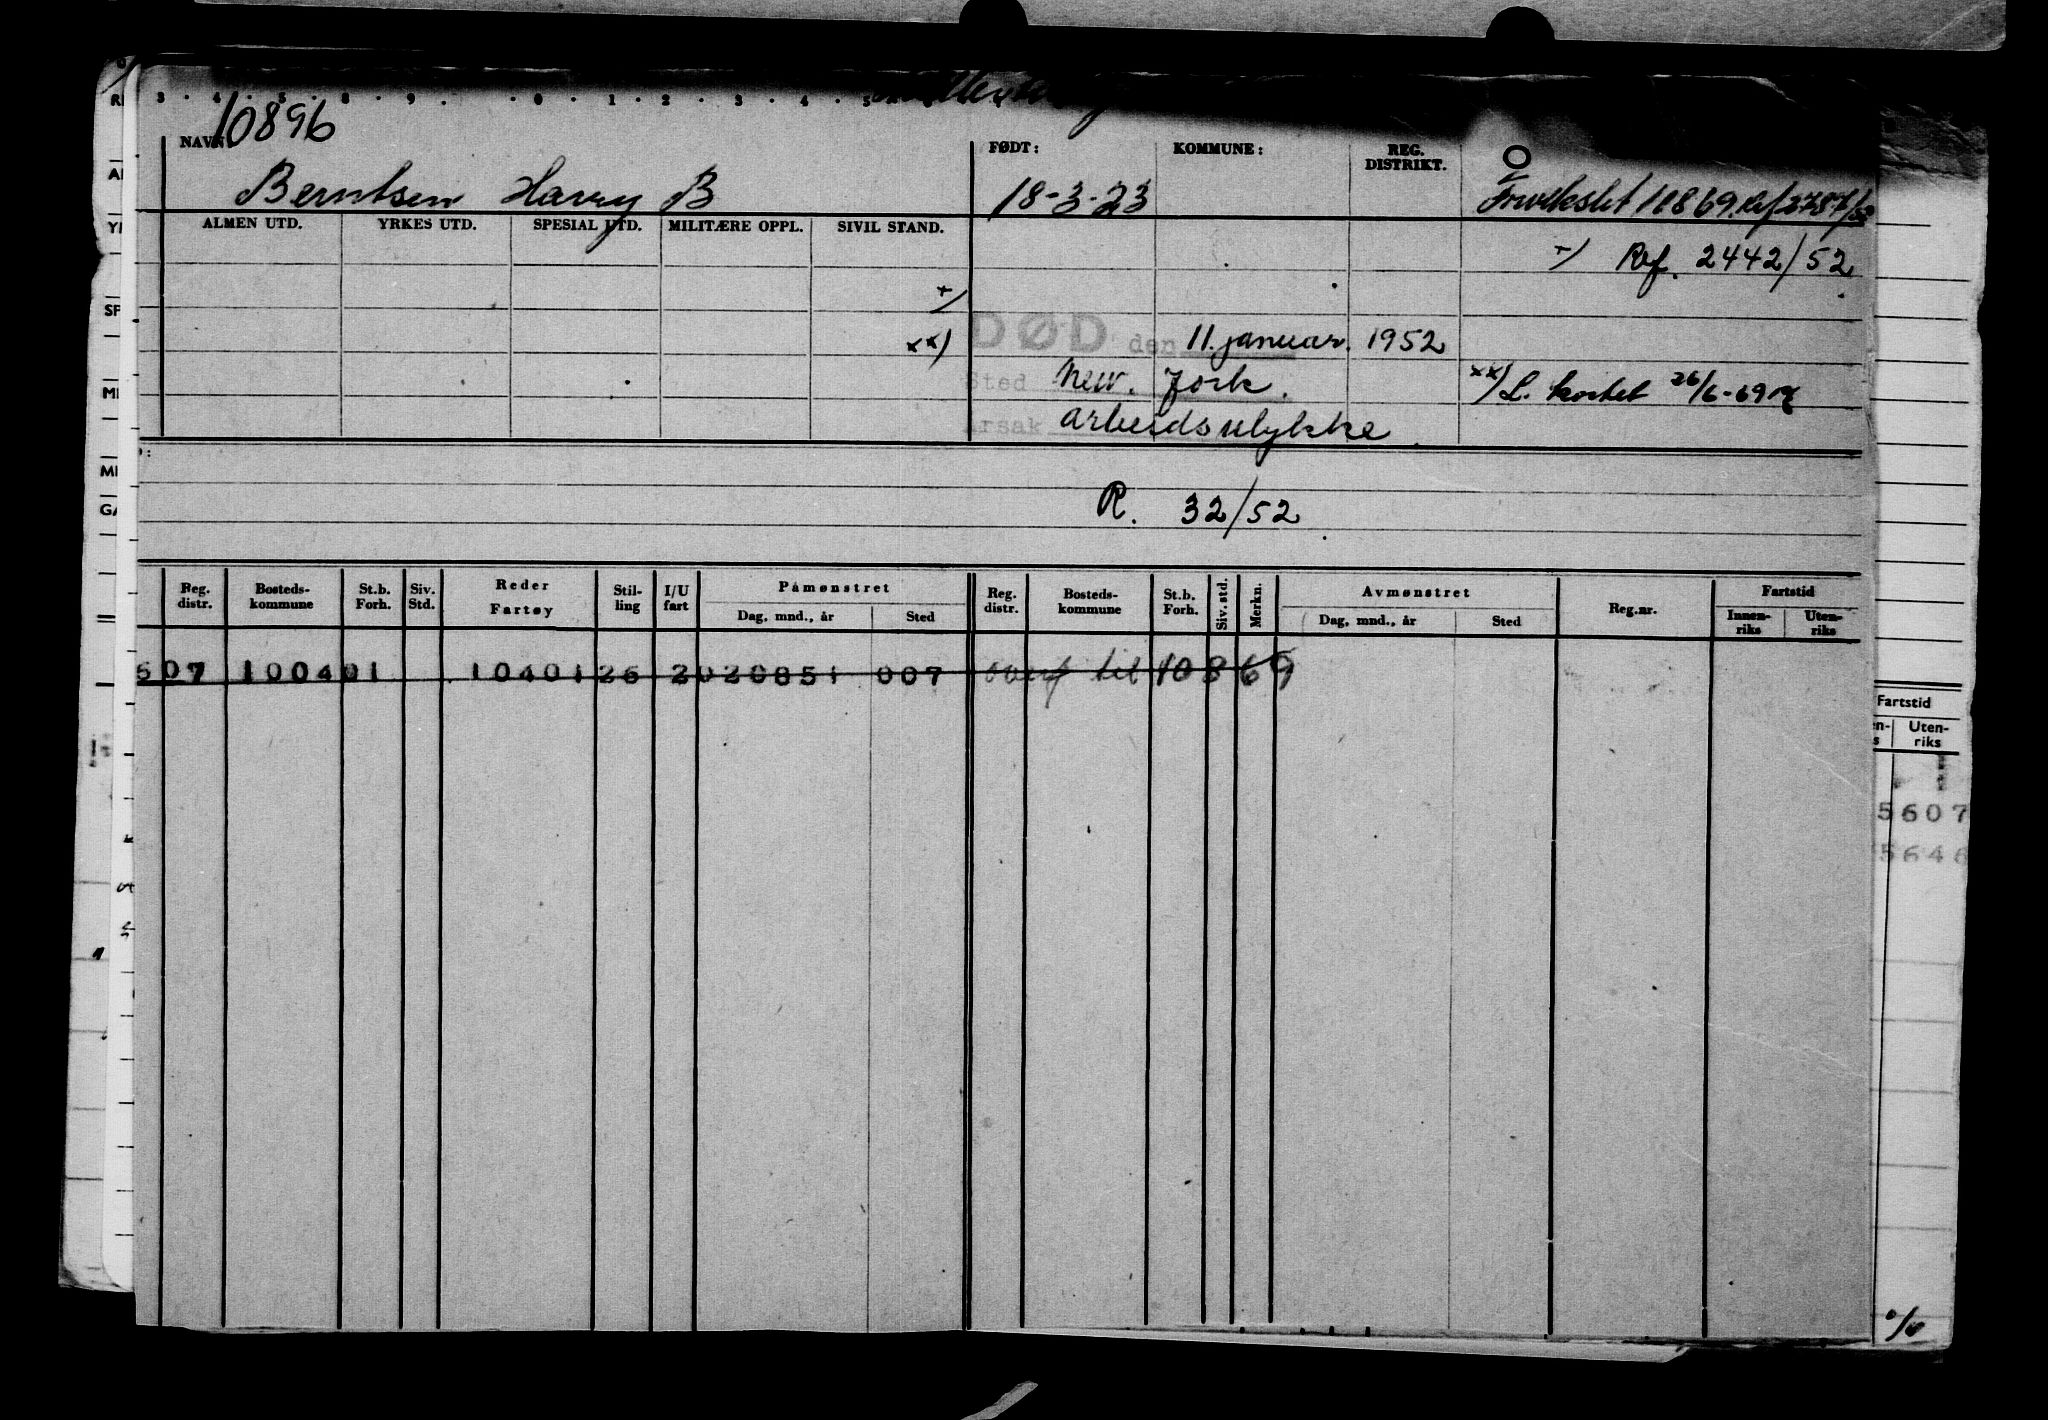 3 . 4 . 5 . 8 . 9 . . 0 . 1 . 2 . 3 . 4 . 5
10896
NAVN FØDT: KOMMUNE: REG. DISTRIKT.
Berntsen Harry B 18-3-23 Forvekslet 10869. Ref 2787/52
ALMEN UTD. YRKES UTD. SPESIAL UTD. MILITÆRE OPPL. SIVIL STAND.
+/ Ref. 2442/52
+/
xx) DØD den 11. januar. 1952
Sted New. York. xx) L. kortet 26/6-69
Årsak arbeidsulykke.
R. 32/52
Reg. distr. Bosteds-kommune St.b. Forh. Siv. Std. Reder Fartøy Stil-ling I/U fart Påmønstret Reg. distr. Bosteds-kommune St.b. Forh. Siv. std. Merkn. Avmønstret Reg.nr. Fartstid
Dag, mnd., år Sted Dag, mnd., år Sted Innen-riks Uten-riks
607 100401 10401 26 2 020851 007 overf til 10869
Fartstid
Uten-riks
5607
5646
%